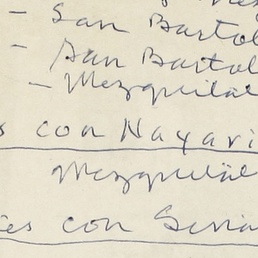 - San Bartol
- San Bartol
- Mezquital
s con Nayari
Mezquital
es con Sina